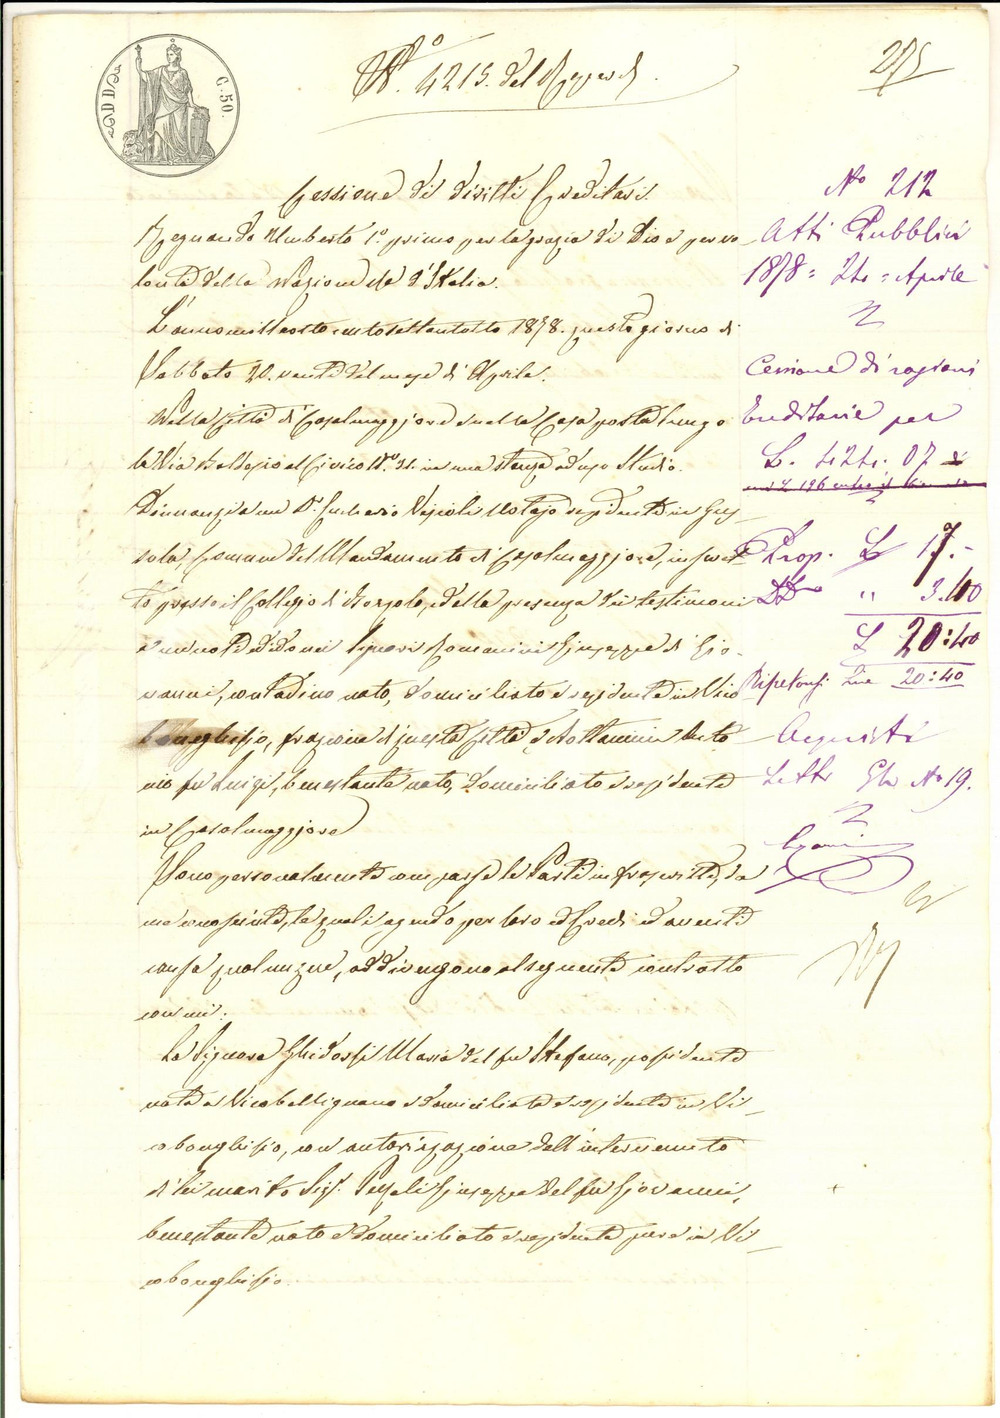 ADD
C. 50.
N.° 4215. del
275
Cessione di diritti Ereditari.
Regnando Umberto 1.° primo per la grazia di Dio e per vo
lontà della Nazione Re d'Italia.
L'anno mille ottocento settantotto 1878. questo giorno di
Sabbato 20. venti del mese di Aprile.
Nella Città di Casalmaggiore e nella Casa posta lungo
la Via Baldesio al Civico N.° 31. in una stanza ad uso Studio.
Dinnanzi a me D.r Notajo residente in Gus-
sola, Comune del Mandamento di Casalmaggiore, inscrit-
to presso il Collegio di Bozzolo, e della presenza dei testimoni
a me noti ed idonei Signori Romanini Giuseppe di Gio-
vanni, contadino nato, domiciliato e residente in Vico
bonghisio, frazione di questa Città e Anto
nio fu Luigi, benestante nato, domiciliato e residente
in Casalmaggiore
Sono personalmente comparse le Parti infrascritte, da
me conosciute, le quali agendo per loro ed Eredi ed aventi
causa qualunque, addivengono al seguente contratto
con cui:
La Signora Ghidorsi Maria del fu Stefano, possidente
nata a Vicobellignano e domiciliata e residente in Vi-
cobonghisio, con autorizzazione dell'intervenuto
di lei marito Sig.r Giuseppe del fu Giovanni,
benestante nato e domiciliato e residente pure in Vi-
cobonghisio.
N° 212
Atti Pubblici
1878 = 24 = Aprile
Cessione di ragioni
Ereditarie per
L. 424. 07
Prop. L 17.-
" 3.40
L 20:40
Ripetonsi Lire 20:40
Acquisti
N° 19.